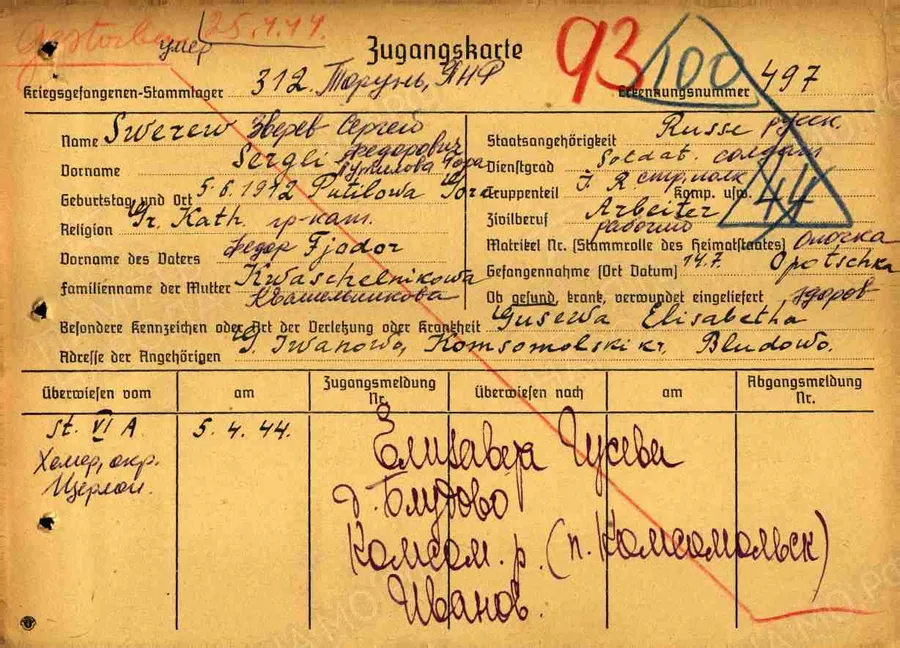 Gestorben 25.4.44.
умер
Zugangskarte
93 100
Kriegsgefangenen-Stammlager 312 Торунь, ЯНФ
Erkennungsnummer 497
Name Swerew Зверев Сергей
Vorname Sergei Федорович
Путилова Гора
Geburtstag und Ort 5.6.1912 Putilowa Gora
Religion Gr. Kath. гр-кат.
Vorname des Vaters Федор Fjodor
Familienname der Mutter Kwaschelnikowa
Квашельникова
Staatsangehörigkeit Russe русск.
Dienstgrad Soldat. солдат
Truppenteil J. R стр. полк Komp. usw. 44
Zivilberuf Arbeiter
рабочий
Matrikel Nr. (Stammrolle des Heimatstaates) Опочка
Gefangennahme (Ort Datum) 14.7. Opotschka
Ob gesund, krank, verwundet eingeliefert здоров
Besondere Kennzeichen oder Art der Verletzung oder Krankheit Gusewa Elisabetha
Adresse der Angehörigen G. Iwanowo, Komsomolski kr, Bludowo.
Überwiesen vom am Zugangsmeldung Nr. Überwiesen nach am Abgangsmeldung Nr.
St. VI A 5.4.44.
Хемер, окр.
Елизавета Гусева
д. Блудово
Комсом. р. (п. Комсомольск)
Иванов.